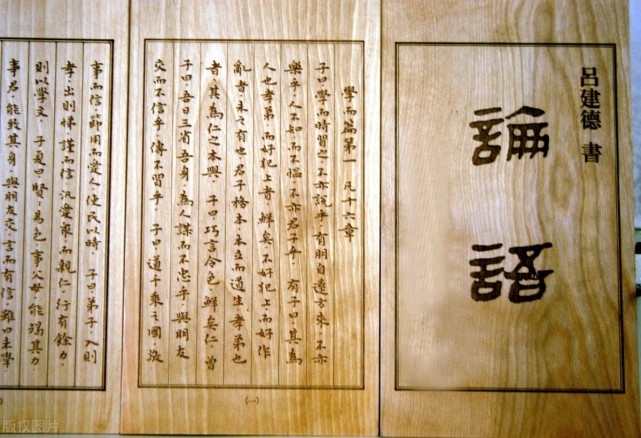 呂建德 書
論語
學而篇第一 凡十六章
子曰學而時習之。不亦說乎。有朋自遠方來。不亦
樂乎。人不知而不慍。不亦君子乎。有子曰其為
人也孝弟。而好犯上者。鮮矣。不好犯上。而好作
亂者。未之有也。君子務本。本立而道生。孝弟也
者。其為仁之本與。子曰。巧言令色。鮮矣仁。曾
子曰。吾日三省吾身。為人謀而不忠乎。與朋友
交而不信乎。傳不習乎。子曰。道千乘之國。敬
(一)
事而信。節用而愛人。使民以時。子曰。弟子入則
孝。出則悌。謹而信。汎愛眾。而親仁。行有餘力。
則以學文。子夏曰。賢々易色。事父母。能竭其力
事君。能致其身。與朋友交。言而有信。雖曰未學
版权图片